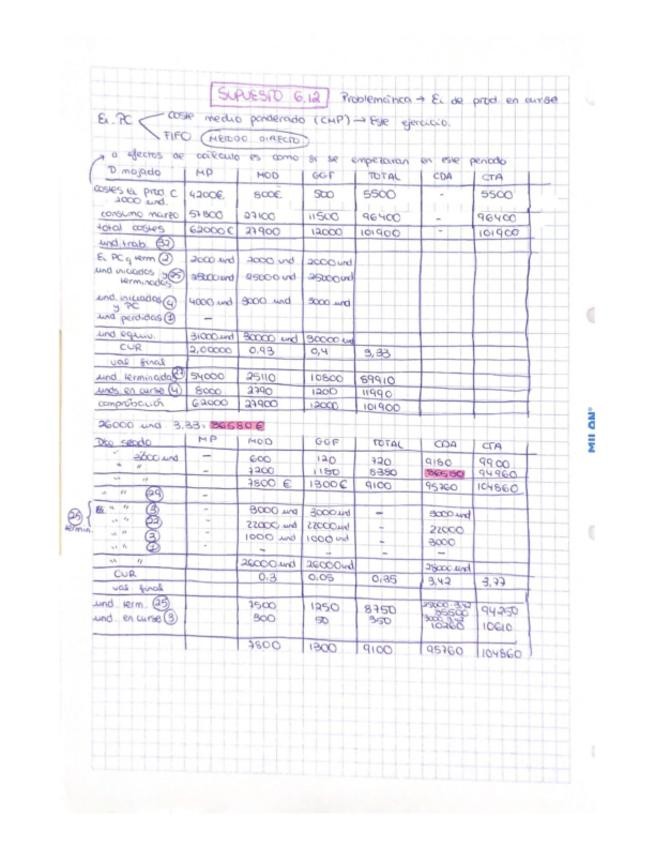 SUPUESTO 6.12 Problemática → Ei de prod. en curso
Ei. PC
coste medio ponderado (CMP) → Este ejercicio.
FIFO (METODO DIRECTO)
a efectos de cálculo es como si se empezaran en este periodo
D. mojado MP MOD GGF TOTAL CDA CTA
costes Ei prod C 4200€ 800€ 500 5500 - 5500
2000 und.
consumo marzo 57800 27100 11500 96400 - 96400
total costes 62000€ 27900 12000 101900 - 101900
und trab. (32)
Ei PC y term (2) 2000 und 2000 und 2000 und
und iniciadas y (25) 25000 und 25000 und 25000 und
terminadas
und. iniciadas (4) 4000 und 3000 und 3000 und
y PC
und perdidas (1) -
und equiv. 31000 und 30000 und 30000 und
CUR 2,00000 0,93 0,4 3,33
val final
und terminada (27) 54000 25110 10800 89910
unds. en curso (4) 8000 2790 1200 11990
comprobación 62000 27900 12000 101900
26000 und 3,33 = 86580€
Dto secado MP MOD GGF TOTAL CDA CTA
" 3000 und - 600 120 720 9180 9900
" " - 7200 1180 8380 86580 94960
" " - 7800€ 1300€ 9100 95760 104860
" " (29) -
Ei " " (3) - 3000 und 3000 und - 3000 und
(25) " " (22) - 22000 und 22000 und - 22000
termin. " " (3) - 1000 und 1000 und 3000
" " (1) - - - -
" " 26000 und 26000 und 28000 und
CUR 0,3 0,05 0,35 3,42 3,77
val final
und term. (25) 7500 1250 8750 25000·3,42 85500 94250
und. en curso (3) 300 50 350 3000·3,42 10260 10610
7800 1300 9100 95760 104860
MILAN®